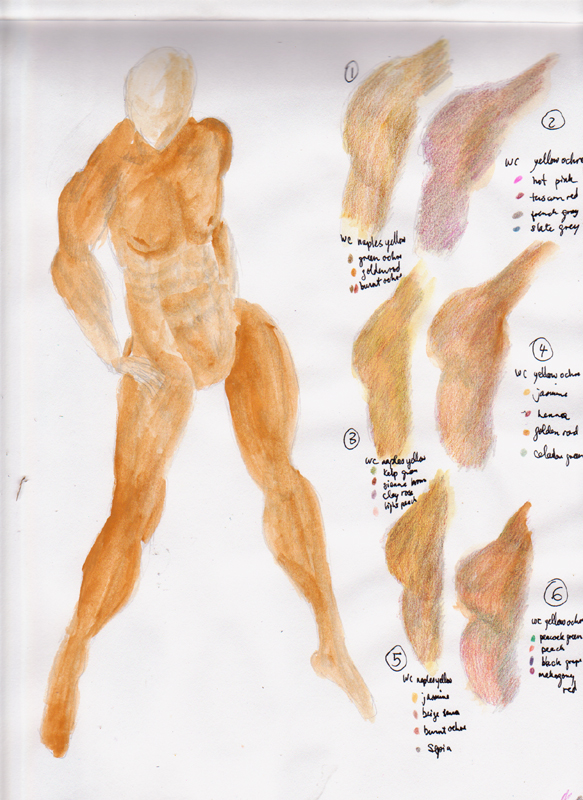 1
wc naples yellow
green ochre
goldenrod
burnt ochre
2
wc yellow ochre
hot pink
tuscan red
french grey
slate grey
3
wc naples yellow
kelp green
sienna brown
clay rose
light peach
4
wc yellow ochre
jasmine
henna
golden rod
celadon green
5
wc naples yellow
jasmine
beige sienna
burnt ochre
sepia
6
wc yellow ochre
peacock green
peach
black grape
mahogany
red